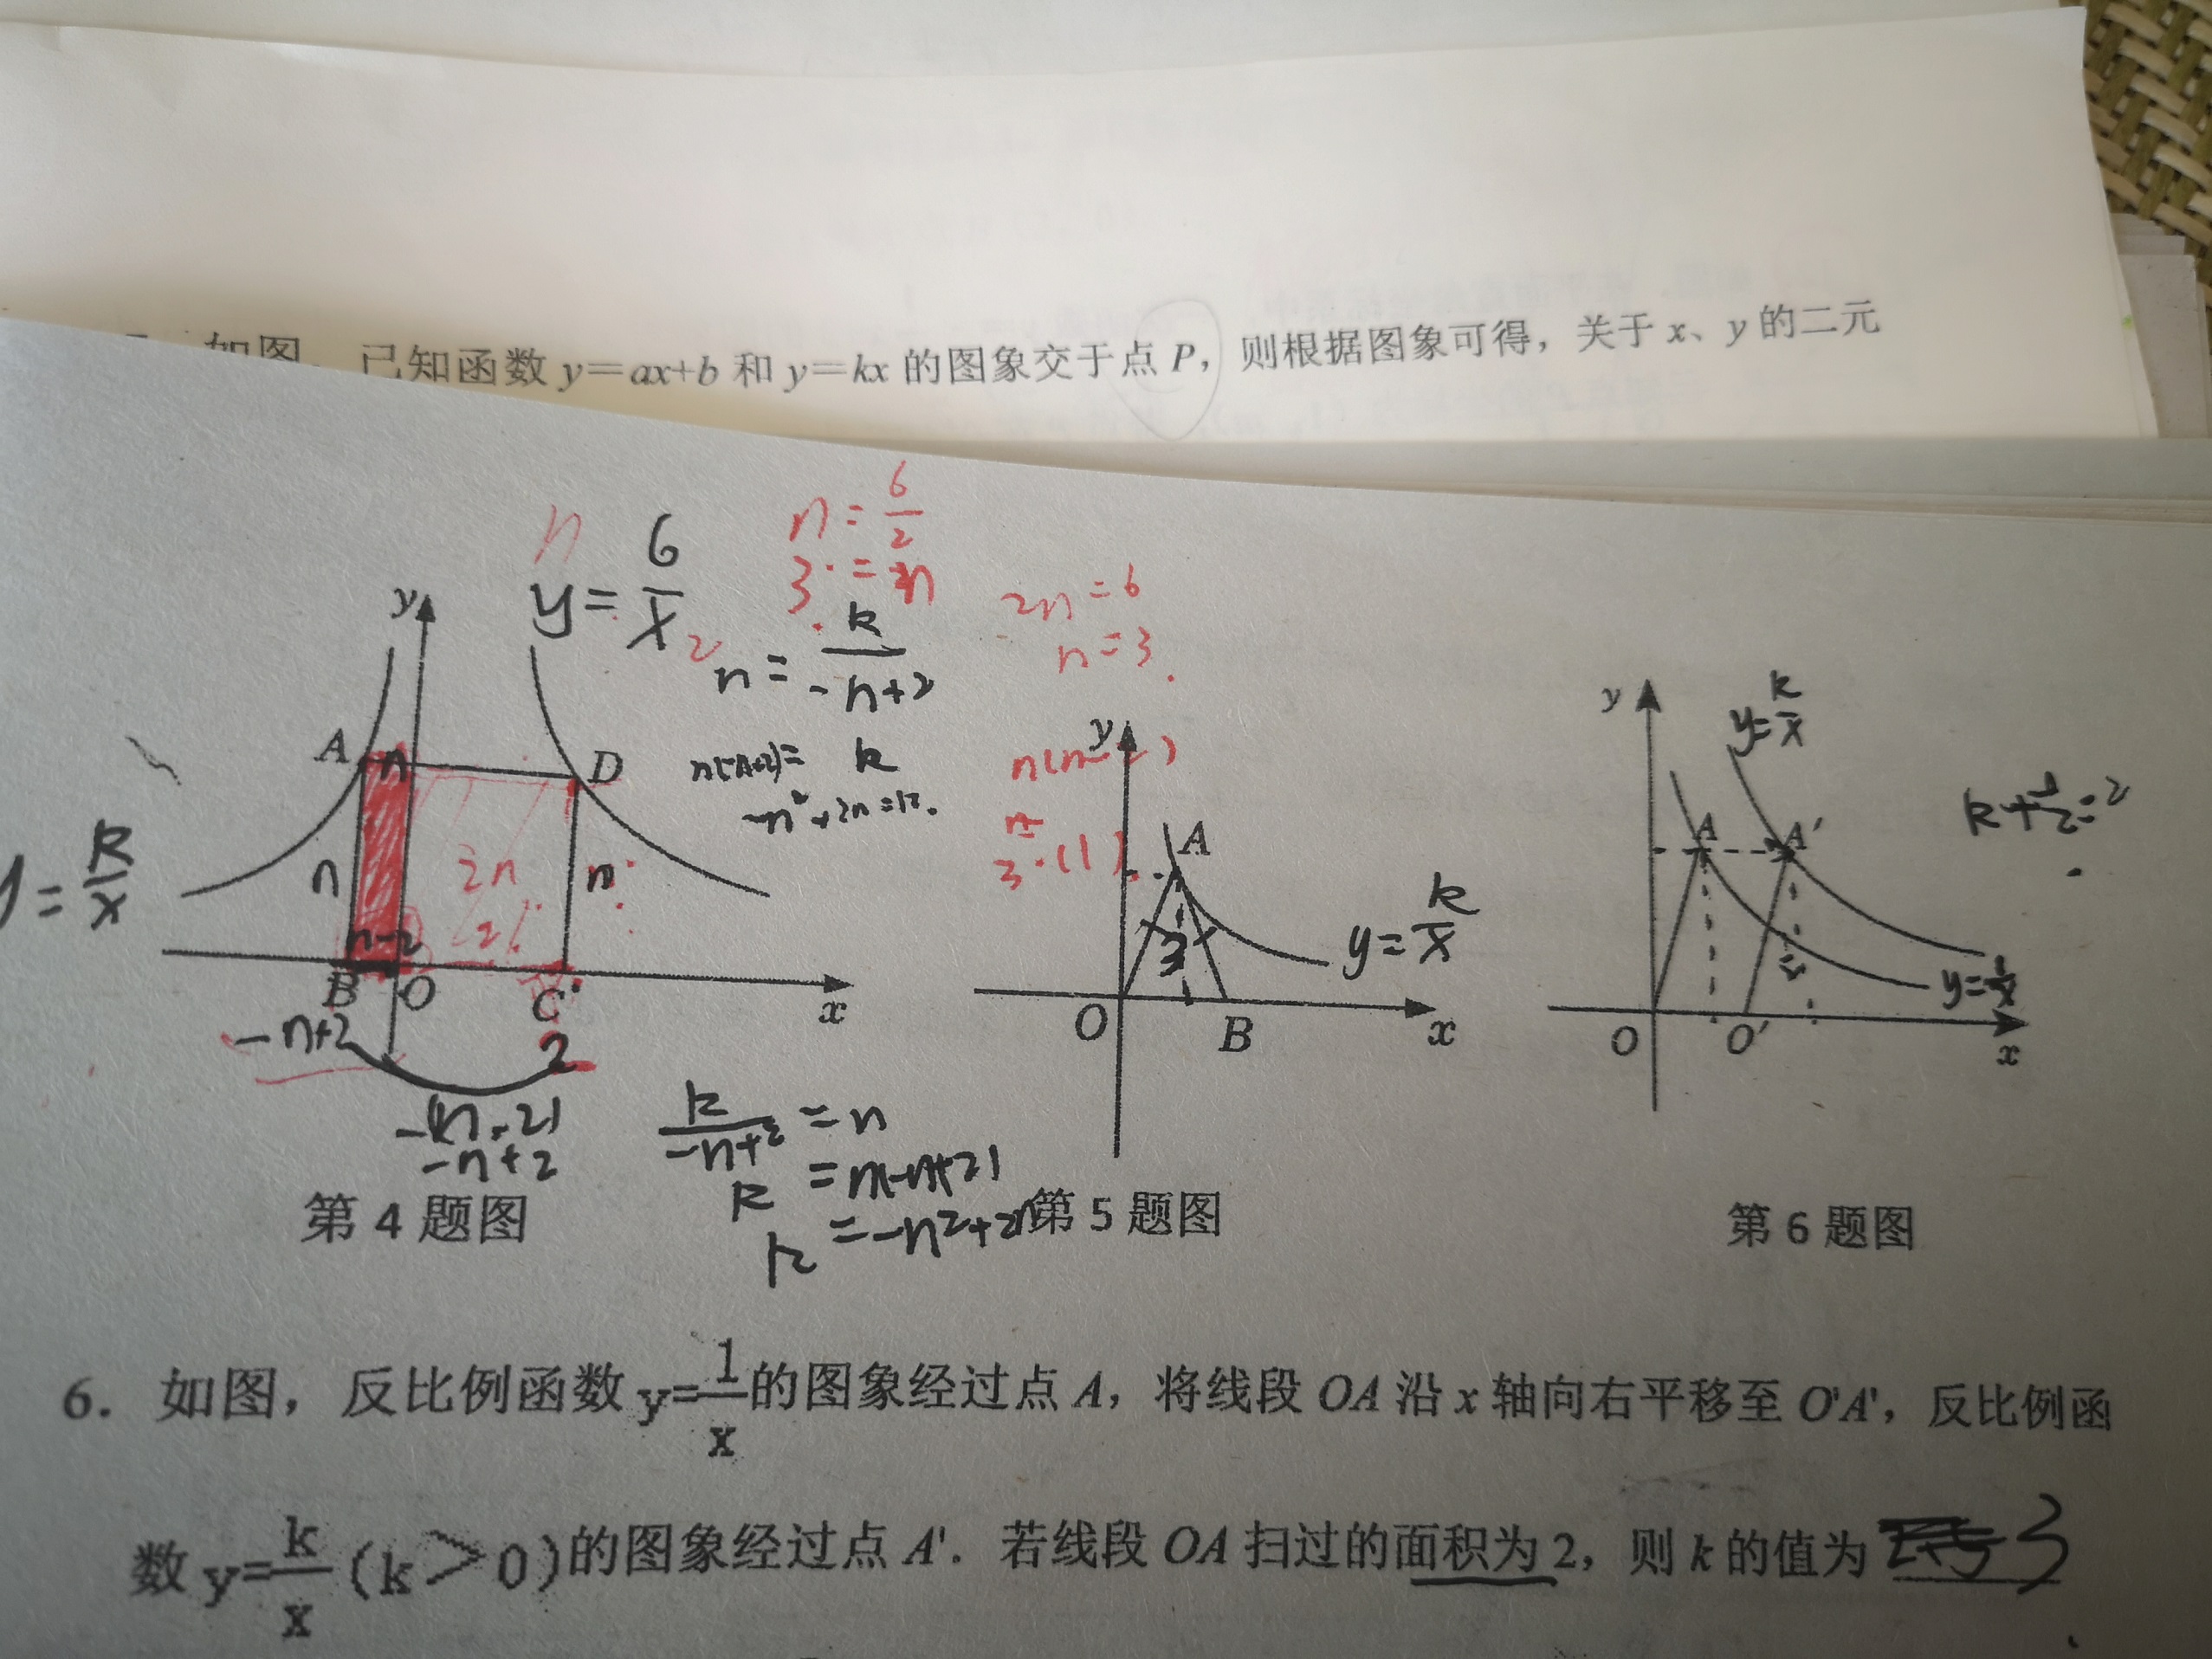 如图，已知函数 y=ax+b 和 y=kx 的图象交于点 P，则根据图象可得，关于 x、y 的二元
n
y=6/x
2
n=6/2
3=n
2n=6
n=3
n=k/(-n+2)
n(-n+2)=k
y
A
n
D
n
2n
2
n
n-2
B
O
C
x
-n+2
2
-(n-2)
-n+2
=k/x
k/(-n+2)=n
k=n(-n+2)
k=-n²+2n
第 4 题图
y
A
3
y=k/x
O
B
x
3·(1)
第 5 题图
y
y=k/x
k+1/2=2
A
A'
y=1/x
O
O'
x
第 6 题图
6. 如图，反比例函数 y=1/x 的图象经过点 A，将线段 OA 沿 x 轴向右平移至 O'A'，反比例函
数 y=k/x (k＞0)的图象经过点 A'. 若线段 OA 扫过的面积为 2，则 k 的值为 3